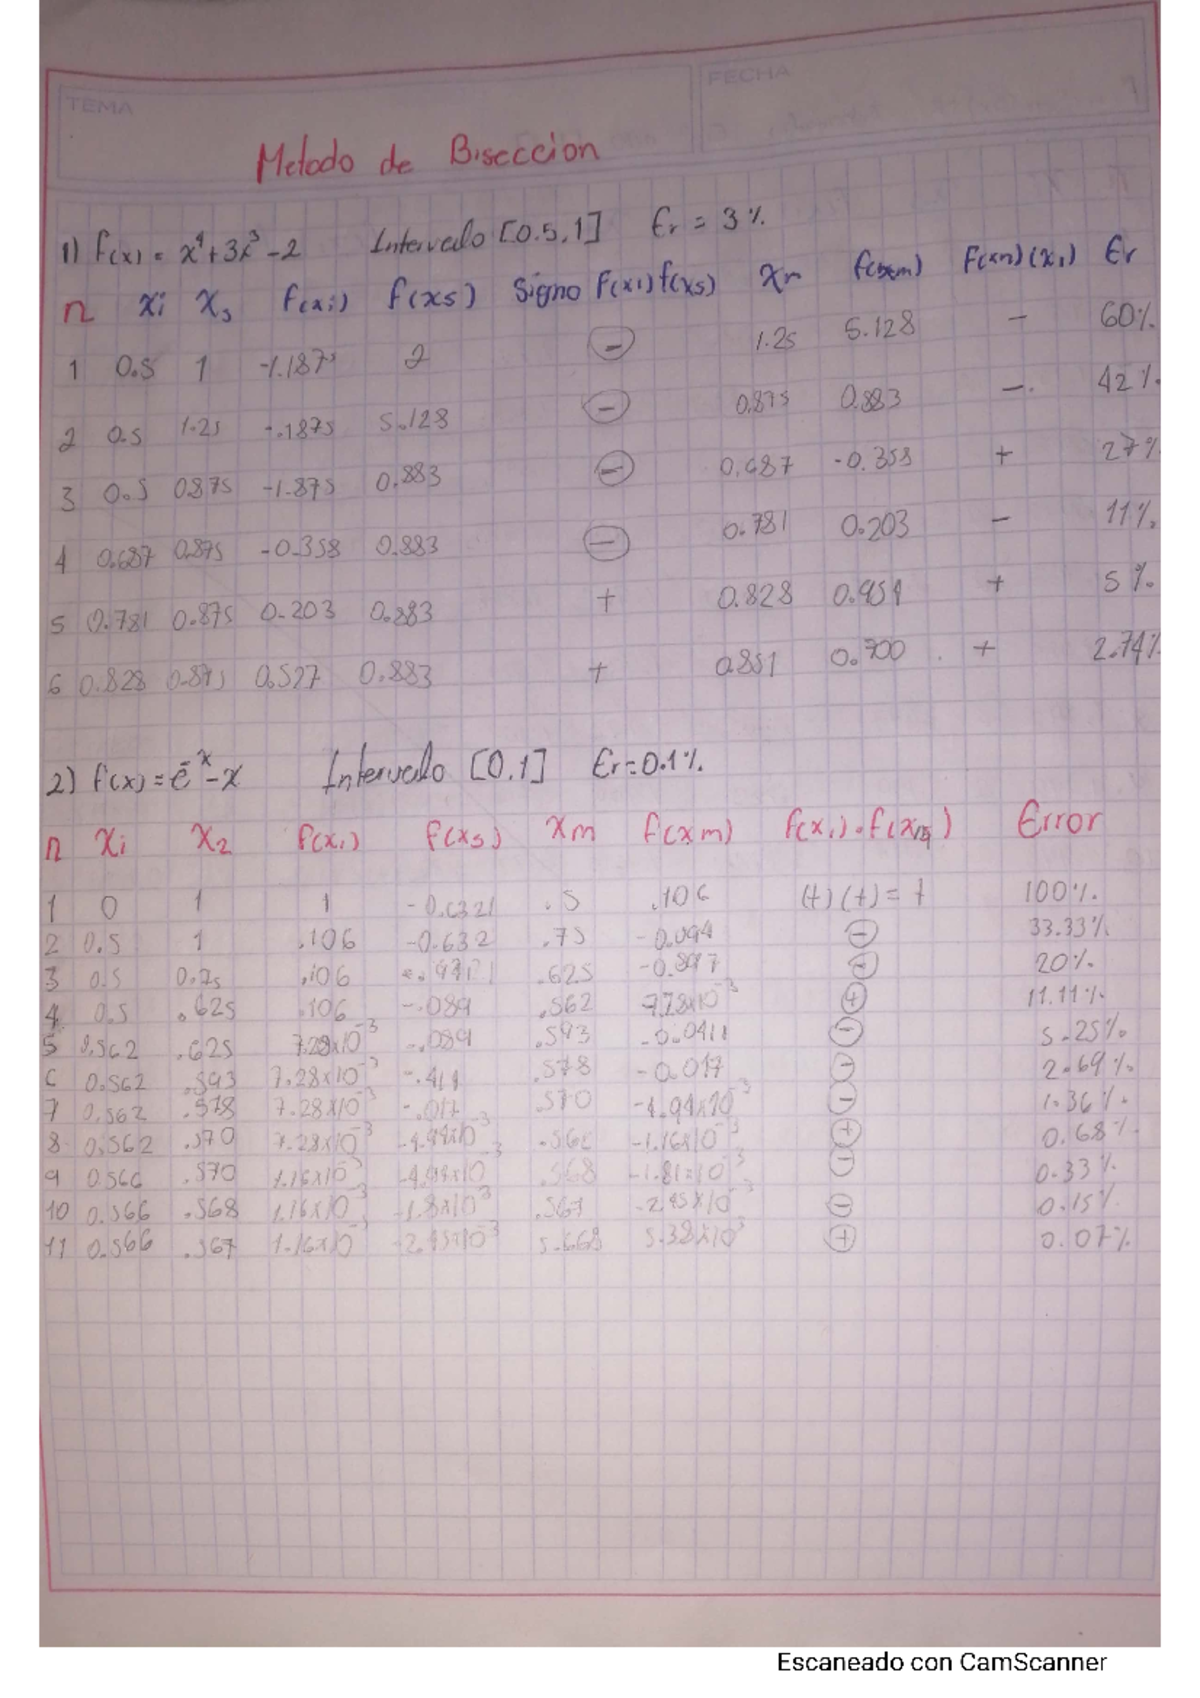 TEMA
FECHA
Metodo de Biseccion
1) f(x) = x⁴+3x³-2 Intervalo [0.5,1] Er = 3%
n xi xs f(xi) f(xs) Signo f(xi)f(xs) xr f(xm) F(xn)(xi) Er
1 0.5 1 -1.1875 2 ⊖ 1.25 5.128 - 60%
2 0.5 1.25 -.1875 5.128 ⊖ 0.875 0.883 - 42%
3 0.5 0.875 -1.875 0.883 ⊖ 0.687 -0.358 + 27%
4 0.687 0.875 -0.358 0.883 ⊖ 0.781 0.203 - 11%
5 0.781 0.875 0.203 0.883 + 0.828 0.954 + 5%
6 0.828 0.875 0.527 0.883 + 0.851 0.700 + 2.74%
2) f(x) = e⁻ˣ-x Intervalo [0,1] Er=0.1%
n xi x2 f(xi) f(xs) xm f(xm) f(xi)·f(xm) Error
1 0 1 1 -0.6321 .5 .106 (+)(+)=+ 100%
2 0.5 1 .106 -0.632 .75 ⊖ 33.33%
3 0.5 0.75 .106 .625 ⊖ 20%
4 0.5 .625 .106 -.089 .562 7.28x10⁻³ ⊕ 11.11%
5 0.562 .625 7.28x10⁻³ -.089 .593 -0.0411 ⊖ 5.25%
6 0.562 .593 7.28x10⁻³ -.411 .578 -0.017 ⊖ 2.69%
7 0.562 .578 7.28x10⁻³ -.017 .570 -4.94x10⁻³ ⊖ 1.36%
8 0.562 .570 7.28x10⁻³ -4.94x10⁻³ .566 -1.16x10⁻³ ⊕ 0.68%
9 0.566 .570 1.16x10⁻³ -4.94x10⁻³ .568 -1.81x10⁻³ ⊖ 0.33%
10 0.566 .568 1.16x10⁻³ -1.8x10⁻³ .567 -2.45x10⁻³ ⊖ 0.15%
11 0.566 .567 1.16x10⁻³ -2.45x10⁻³ 5.668 5.38x10⁻³ ⊕ 0.07%
Escaneado con CamScanner